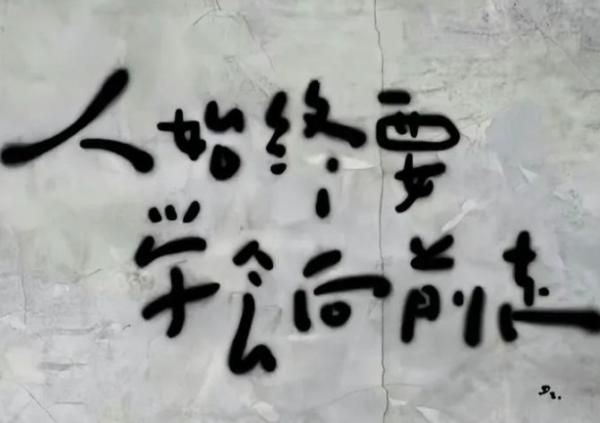 人始终要
学会向前走